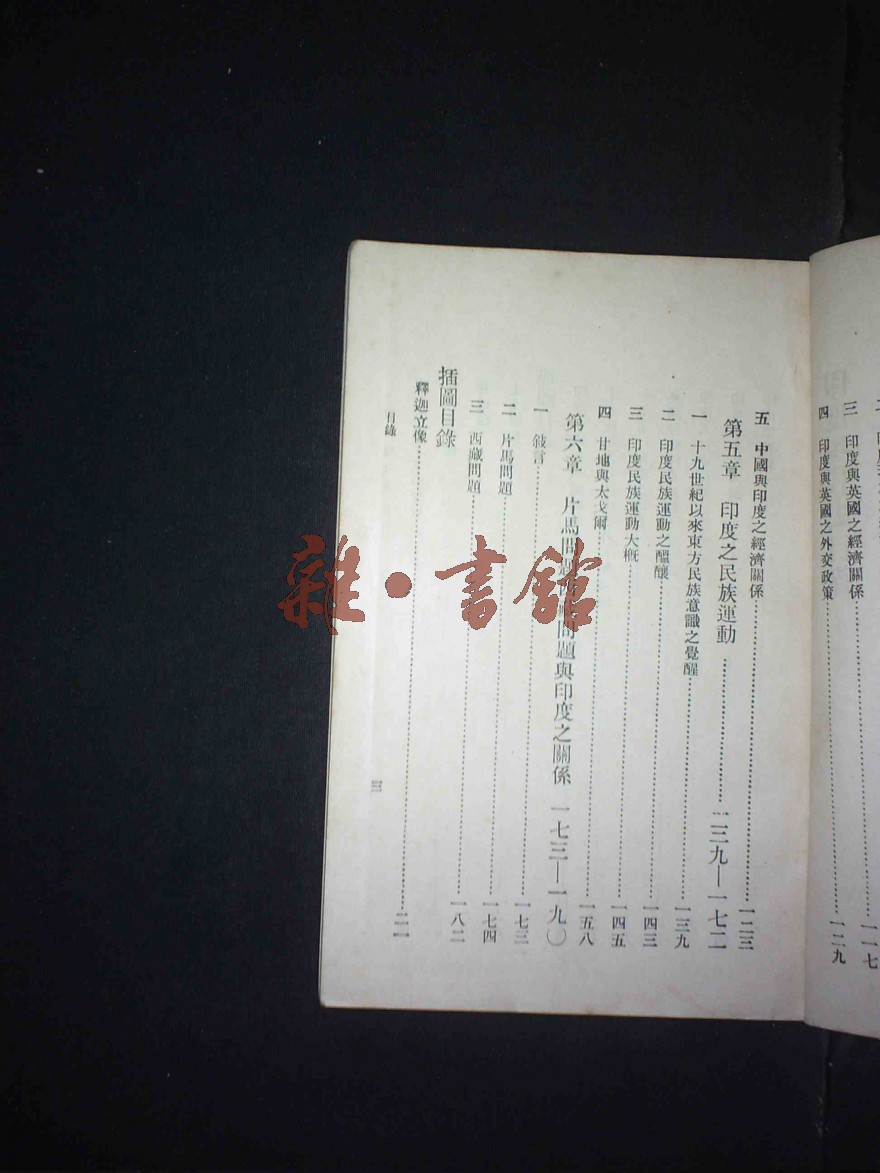 三 印度與英國之經濟關係……一一七
四 印度與英國之外交政策……一二九
五 中國與印度之經濟關係……一三三
第五章 印度之民族運動……一三九—一七二
一 十九世紀以來東方民族意識之覺醒……一三九
二 印度民族運動之醞釀……一四三
三 印度民族運動大概……一四五
四 甘地與太戈爾……一五八
第六章 片馬問題問題與印度之關係 一七三—一九〇
一 敍言……一七三
二 片馬問題……一七四
三 西藏問題……一八二
插圖目錄
釋迦立像……二一
目錄 三
雜·書館